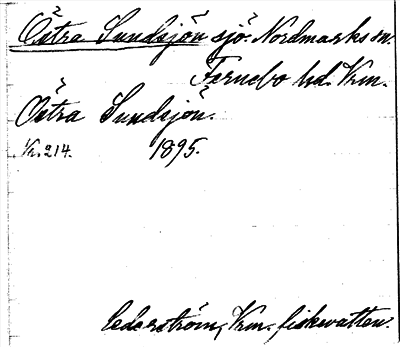 Östra Sundsjön sjö. Nordmarks sn.
Fernebo hd. Vrm.
Östra Sundsjön.
Kr. 214. 1895.
Cederström, Vrm. fiskevatten.